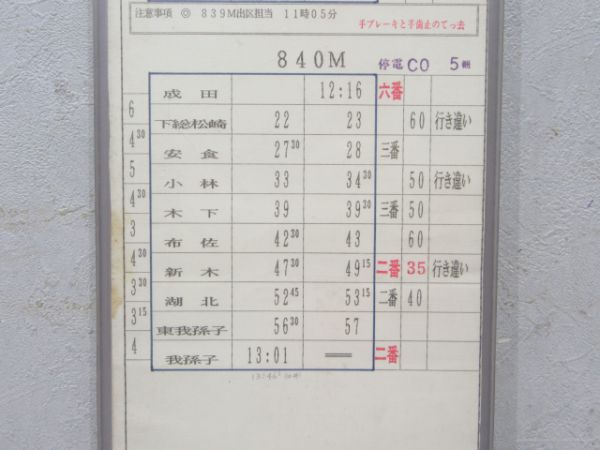 注意事項 ◎ 839M出区担当 11時05分
手ブレーキと手歯止のてっ去
840M 停電 CO 5
成田 12:16 六番
6
下総松崎 22 23 60 行き違い
4 30
安食 27 30 28 三番
5
小林 33 34 30 50 行き違い
4 30
木下 39 39 30 三番 50
3
布佐 42 30 43 60
4 30
新木 47 30 49 15 二番 35 行き違い
3 30
湖北 52 45 53 15 二番 40
3 15
東我孫子 56 30 57
4
我孫子 13:01 二番